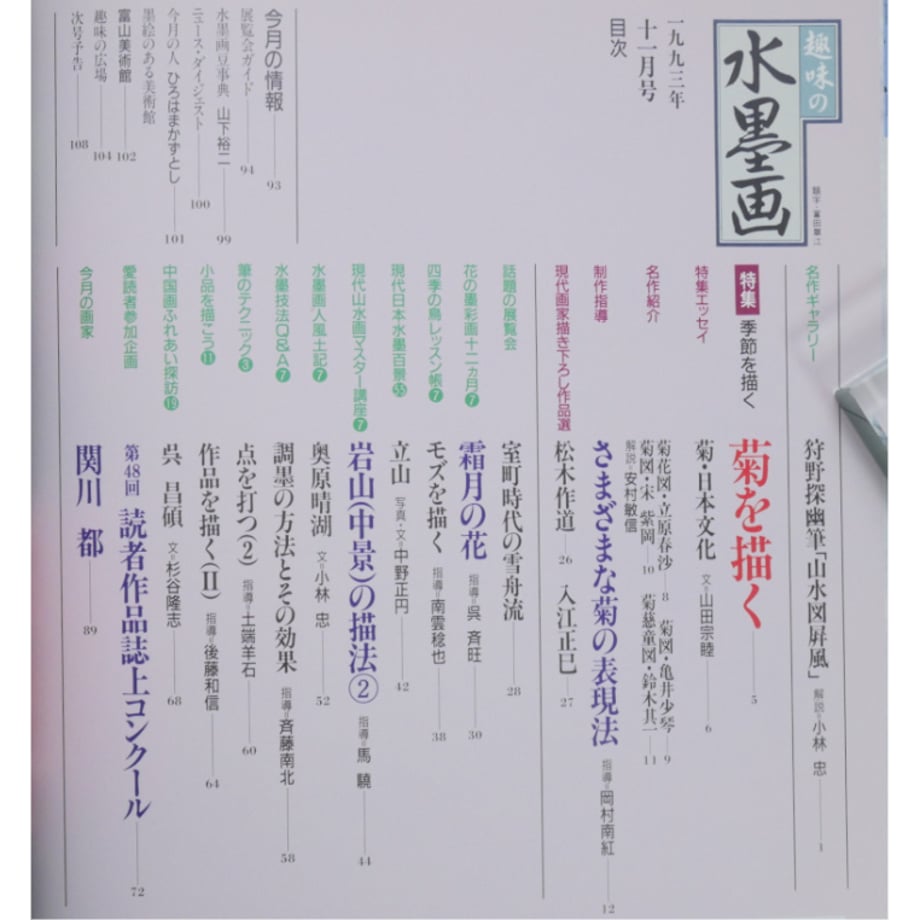 趣味の
水墨画
題字・富田華江
一九九三年
十一月号
目次
名作ギャラリー 狩野探幽筆「山水図屛風」 解説=小林 忠 1
特集 季節を描く 菊を描く 5
特集エッセイ 菊・日本文化 文=山田宗睦 6
名作紹介 菊花図・立原春沙 8 菊図・亀井少琴 9
菊図・宋 紫岡 10 菊慈童図・鈴木其一 11
解説=安村敏信
制作指導 さまざまな菊の表現法 指導=岡村南紅 12
現代画家描き下ろし作品選 松木作道 26 入江正巳 27
話題の展覧会 室町時代の雪舟流 28
花の墨彩画十二ヵ月7 霜月の花 指導=呉 斉旺 30
四季の鳥レッスン帳7 モズを描く 指導=南雲稔也 38
現代日本水墨百景55 立山 写真・文=中野正円 42
現代山水画マスター講座7 岩山(中景)の描法② 指導=馬 驍 44
水墨画人風土記7 奥原晴湖 文=小林 忠 52
水墨技法Q&A7 調墨の方法とその効果 指導=斉藤南北 58
筆のテクニック3 点を打つ(2) 指導=土端羊石 60
小品を描こう11 作品を描く(II) 指導=後藤和信 64
中国画ふれあい探訪19 呉 昌碩 文=杉谷隆志 68
愛読者参加企画 第48回 読者作品誌上コンクール 72
今月の画家 関川 都 89
今月の情報 93
展覧会ガイド 94
水墨画豆事典 山下裕二 99
ニュース・ダイジェスト 100
今月の人 ひろはまかずとし 101
墨絵のある美術館
富山美術館 102
趣味の広場 104
次号予告 108